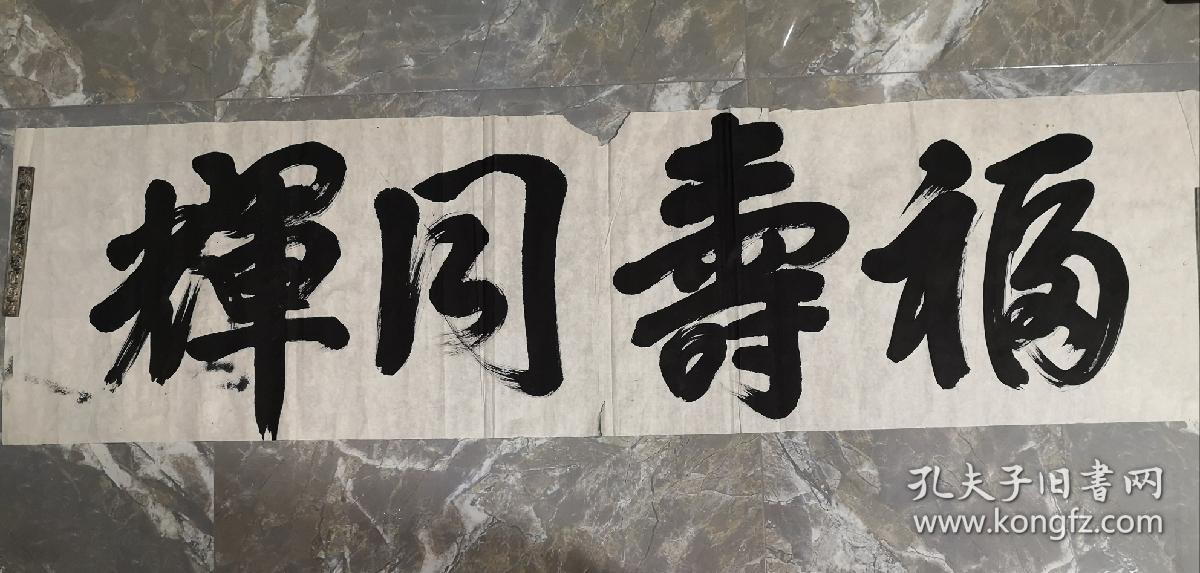 福壽同輝
孔夫子旧書网
www.kongfz.com